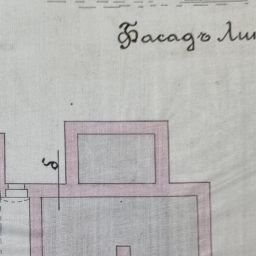 Фасадъ Ли